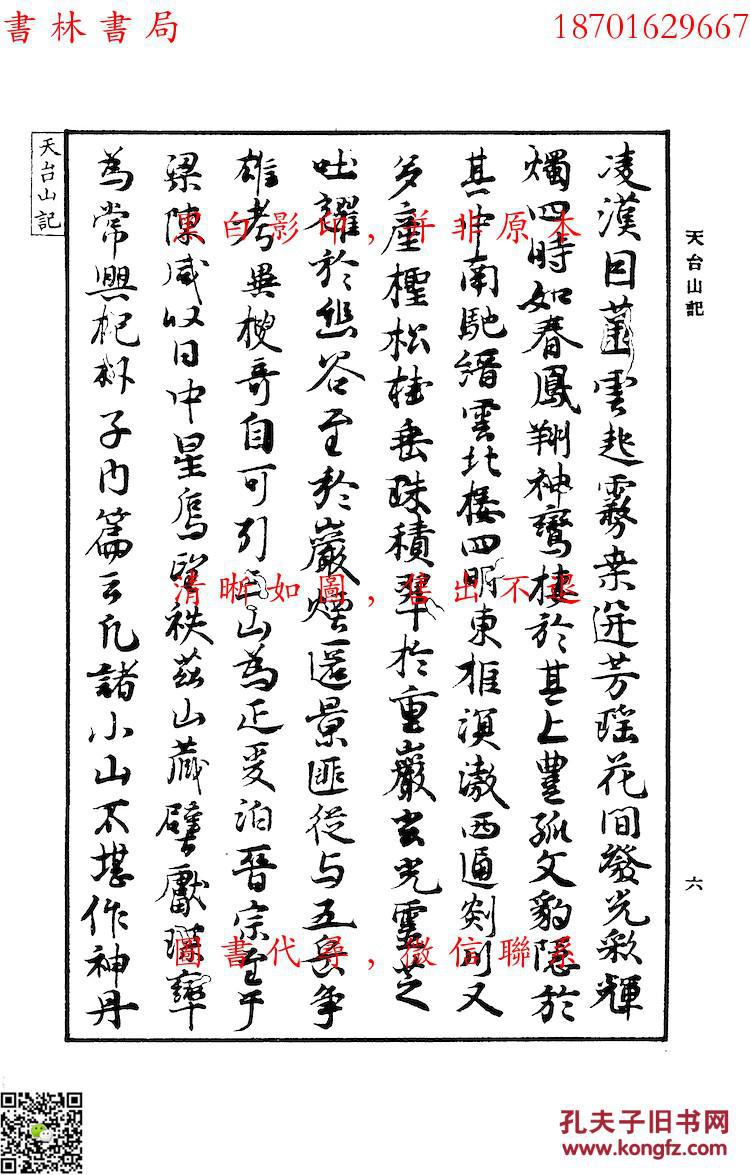 書林書局
18701629667
天台山記
六
凌漢日雲起霧芳瑶花間發光彩輝
燭四時如春鳳翔神鸞棲於其上豊狐文豹隱於
其中南馳縉雲北接四明東拒溟渤西通剡川又
多産檉松桂垂珠積翠於重巖玄光靈芝
吐耀於幽谷至於巖煙還景匪從与五岳争
雄考異搜奇自可引三山為正爰洎晉宗至于
梁陳咸以日中星鳥望秩茲山藏璧獻琮率
為常典抱朴子内篇云凡諸小山不堪作神丹
天台山記
黑白影印，并非原本
清晰如圖，售出不退
圖書代尋，微信聯系
孔夫子旧书网
www.kongfz.com